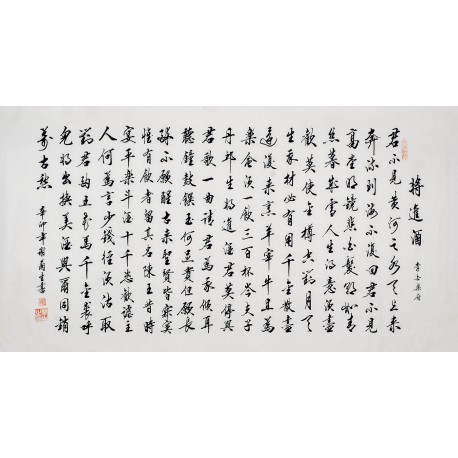 將進酒
君不見黃河之水天上来
奔流到海不復回君不見
高堂明鏡悲白髮朝如青
絲暮成雪人生得意須盡
歡莫使金樽空對月天
生我材必有用千金散盡
還復来烹羊宰牛且為
樂會須一飲三百杯岑夫子
丹邱生将進酒君莫停與
君歌一曲請君為我傾耳
聽鐘鼓饌玉何足貴但願長
醉不願醒古来聖賢皆寂寞
惟有飲者留其名陳王昔時
宴平樂斗酒十千恣歡謔主
人何為言少錢徑須沽取
對君酌五花馬千金裘呼
兒将出換美酒與爾同銷
萬古愁
辛卯年